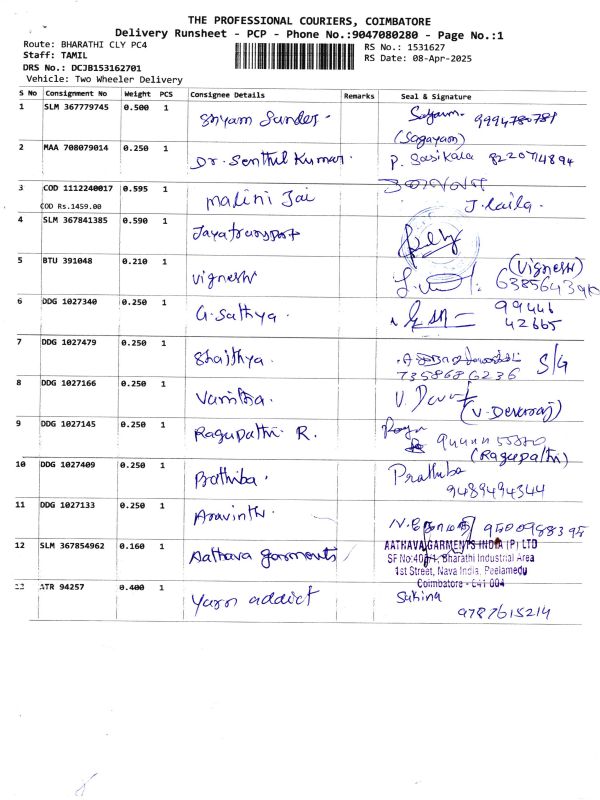 THE PROFESSIONAL COURIERS, COIMBATORE
Delivery Runsheet - PCP - Phone No.:9047080280 - Page No.:1
Route: BHARATHI CLY PC4
RS No.: 1531627
Staff: TAMIL
RS Date: 08-Apr-2025
DRS No.: DCJB153162701
Vehicle: Two Wheeler Delivery
S No Consignment No Weight PCS Consignee Details Remarks Seal & Signature
1 SLM 367779745 0.500 1 Shyam Sunder. 9994780781
(Sagayam)
2 MAA 708079014 0.250 1 Dr. Senthil Kumar. P. Sasikala
3 COD 1112240017 0.595 1 Malini Jai
COD Rs.1459.00 J. Laila.
4 SLM 367841385 0.590 1 Jayatransport
5 BTU 391048 0.210 1 Vignesh (Vignesh)
6 DDG 1027340 0.250 1 G. Sathya. 99446
42665
7 DDG 1027479 0.250 1 S/G
7358686236
8 DDG 1027166 0.250 1 Vanitha. (V. Devaraj)
9 DDG 1027145 0.250 1 Ragupathi R.
(Ragupathi)
10 DDG 1027409 0.250 1 Prathiba. Prathiba
9489494344
11 DDG 1027133 0.250 1 Aravinth. 9500988395
12 SLM 367854962 0.160 1 Aathava garments
AATHAVA GARMENTS INDIA (P) LTD
1st Street, Nava India, Peelamedu
Coimbatore - 641 004
13 ATR 94257 0.400 1 Yarn addict Sakina
9787615214